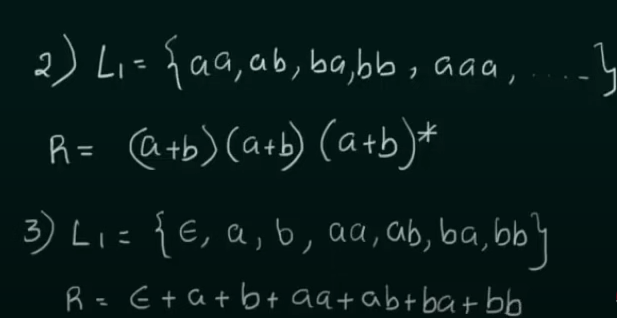 2) L₁ = {aa, ab, ba, bb, aaa, .....}
R = (a+b)(a+b)(a+b)*
3) L₁ = {ϵ, a, b, aa, ab, ba, bb}
R = ϵ + a + b + aa + ab + ba + bb